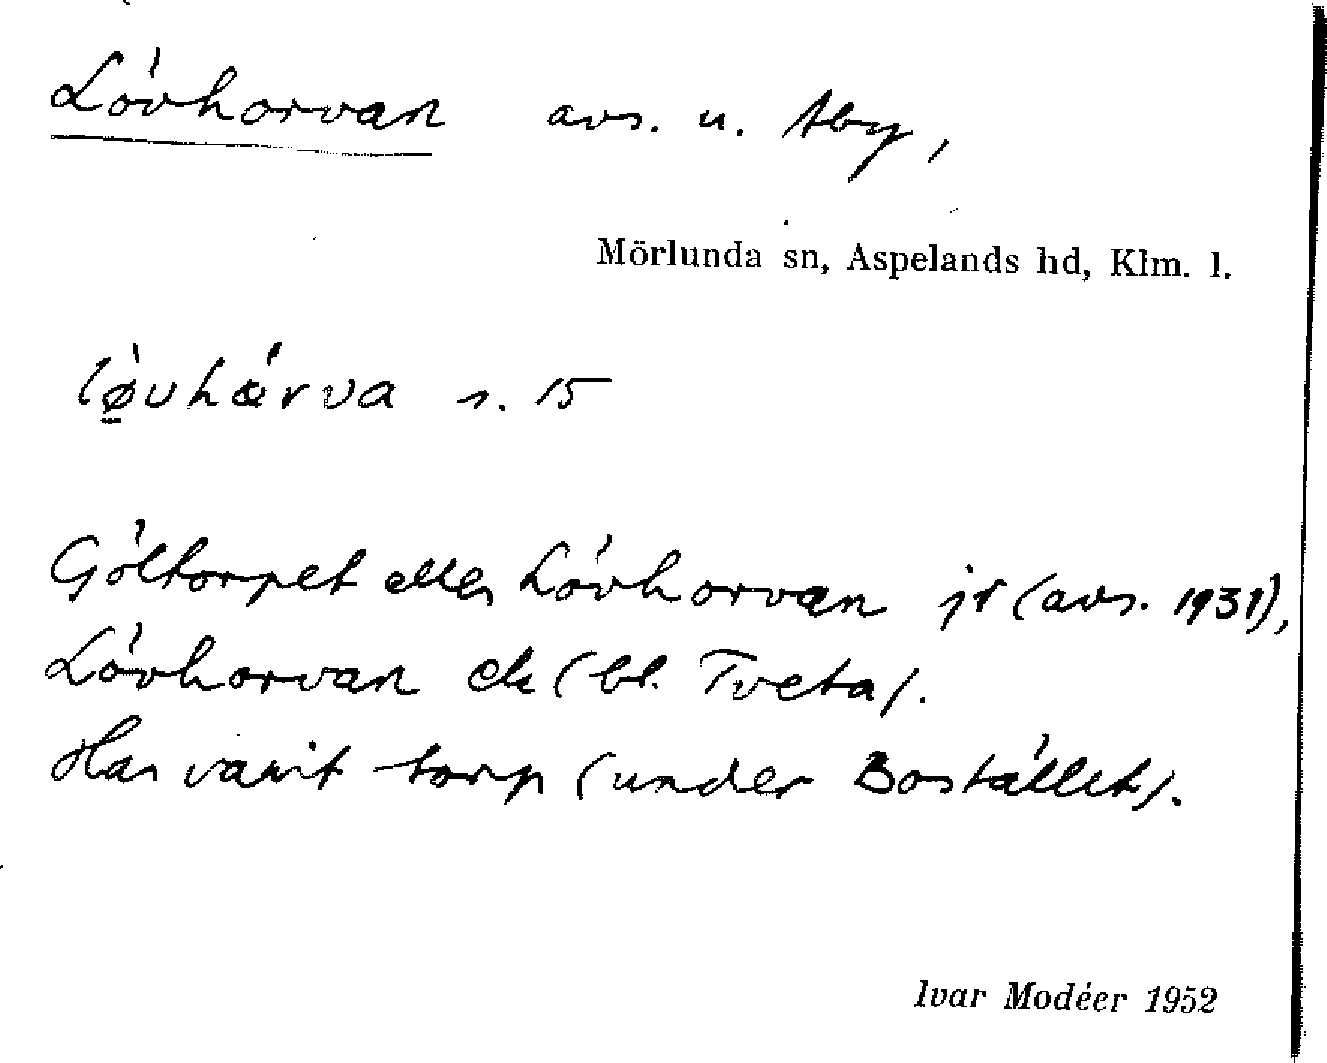 Lövhorvan avs. u. Åby,
Mörlunda sn, Aspelands hd, Klm. l.
lø̀vhárva s. 15
Göltorpet eller Lövhorvan jr (avs. 1931),
Lövhorvan ek (bl. Tveta).
Har varit torp (under Bostället).
Ivar Modéer 1952